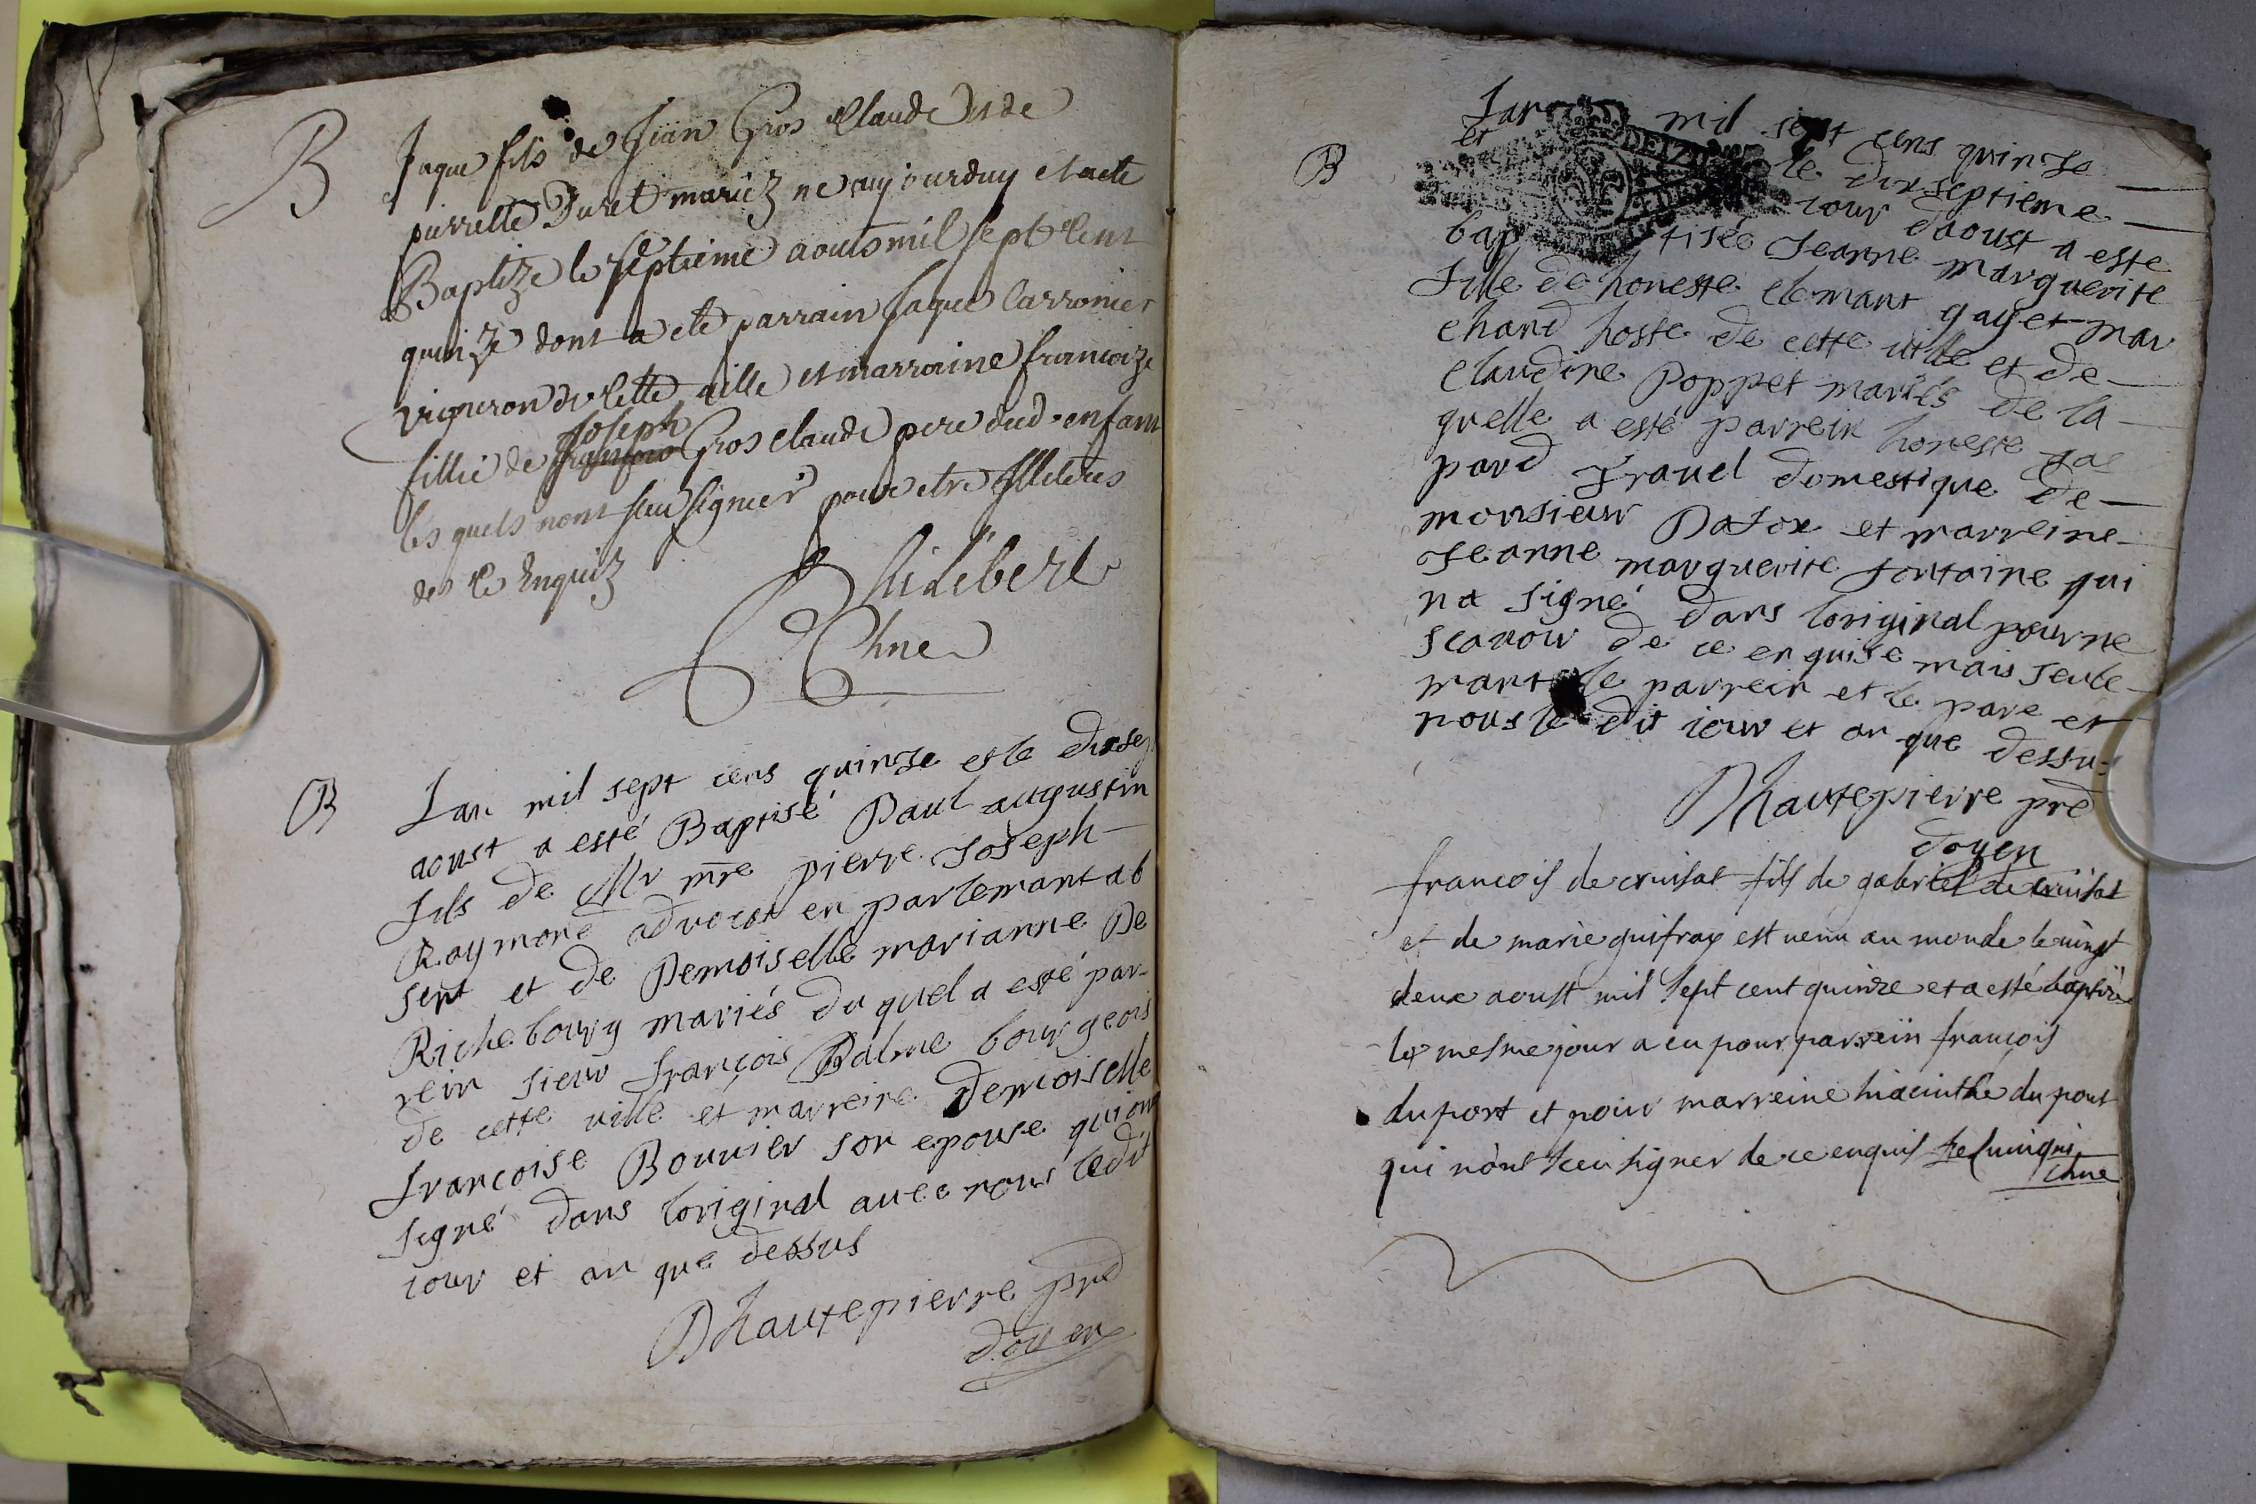 B
Jaque fils de Jian Gros Claude et de
pierrette Furet mariez ne aujourduy et a ete
Baptize le septieme aouts mil sept Cent
quinze dont a ete parrain Jaque Carronier
vigneron de Cette ville et marraine francoize
fillie de francois Joseph Gros Claude pere dud. enfant
les quels nont sceu signer pour etre illeteres
des Ce Enquiz
Childebert
Chne
B
Lan mil sept cens quinze et le dixsep
aoust a esté Baptisé Paul augustin
fils de Mr mre pierre Joseph
Raymond advocat en parlemant ab
sent et de Demoiselle marianne De
Richebourg mariés du quel a esté par-
rein sieur françois Balme bourgeois
de cette ville et marreine Demoiselle
francoise Bouvier son epouse qui ont
signé dans loriginal avec nous ledit
iour et an que dessus
Dhautepierre pred
doyen
B
Lan mil sept cens quinse
et le dixseptieme
iour daoust a esté
baptisée Jeanne marguerite
fille de honeste clemant gayet mar
chand hoste de cette ville et de
Claudine Poppet mariés de la
quelle a esté parrein honeste gas
pard fravel domestique de
monsieur et marreine
Jeanne marguerite fontaine qui
na signé dans loriginal pour ne
scavoir de ce enquise mais seule
mant le parrein et le pare et
nous le dit iour et an que dessus
Dhautepierre pred
doyen
francois de cruisat fils de gabriel de cruisat
et de marie guifray est venu au monde le vingt
deux aoust mil sept cent quinze et a esté baptizé
le mesme jour a eu pour parrein francois
duport et pour marreine hiacinthe du pont
qui nont sceu signer de ce enquis
chne